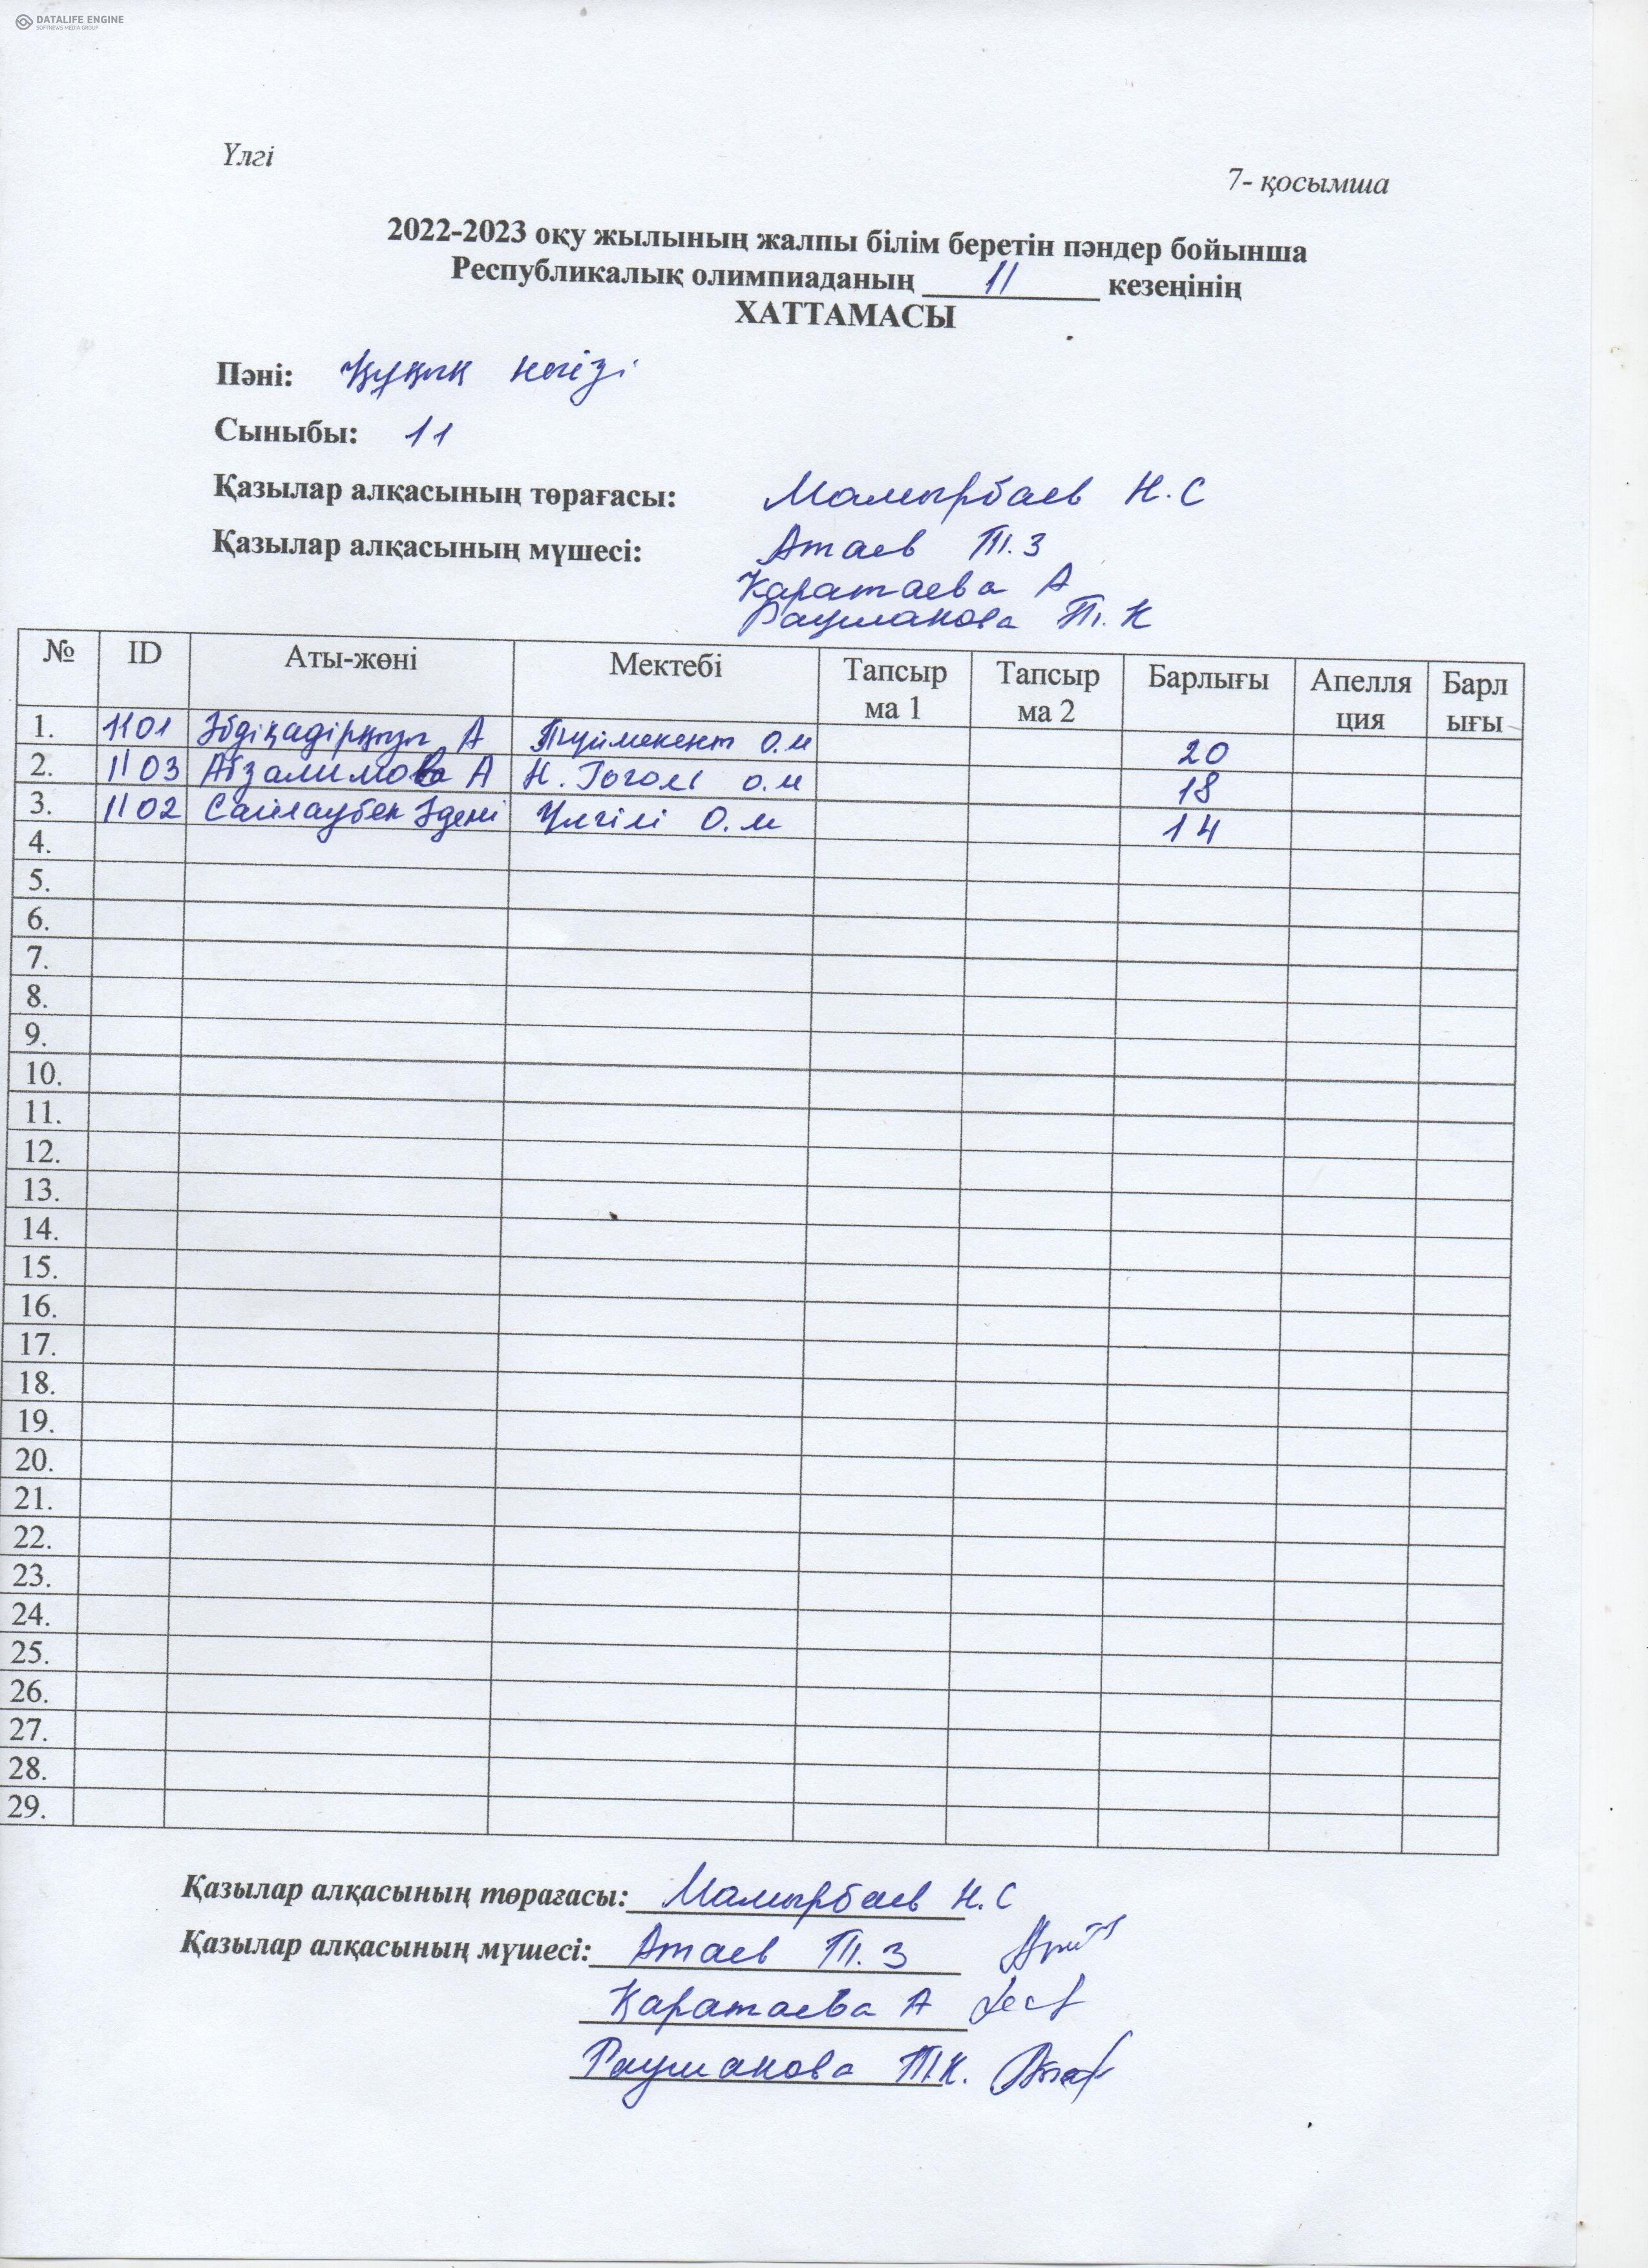 DATALIFE ENGINE
SOFTNEWS MEDIA GROUP
Үлгі
7- қосымша
2022-2023 оқу жылының жалпы білім беретін пәндер бойынша
Республикалық олимпиаданың 11 кезеңінің
ХАТТАМАСЫ
Пәні: Құқық негізі
Сыныбы: 11
Қазылар алқасының төрағасы: Мамырбаев Н.С
Қазылар алқасының мүшесі: Атаев Т.З
Каратаева А
Рауманова Т.К
№ ID Аты-жөні Мектебі Тапсыр ма 1 Тапсыр ма 2 Барлығы Апелля ция Барл ығы
1. 1101 Әбдіқадірқызы А Түймекент О.м 20
2. 1103 Абзалимова А Н.Гоголь о.м 18
3. 1102 Сайлаубек Әдемі Үлгілі О.м 14
4.
5.
6.
7.
8.
9.
10.
11.
12.
13.
14.
15.
16.
17.
18.
19.
20.
21.
22.
23.
24.
25.
26.
27.
28.
29.
Қазылар алқасының төрағасы: Мамырбаев Н.С
Қазылар алқасының мүшесі: Атаев Т.З
Қаратаева А
Рауманова Т.К.